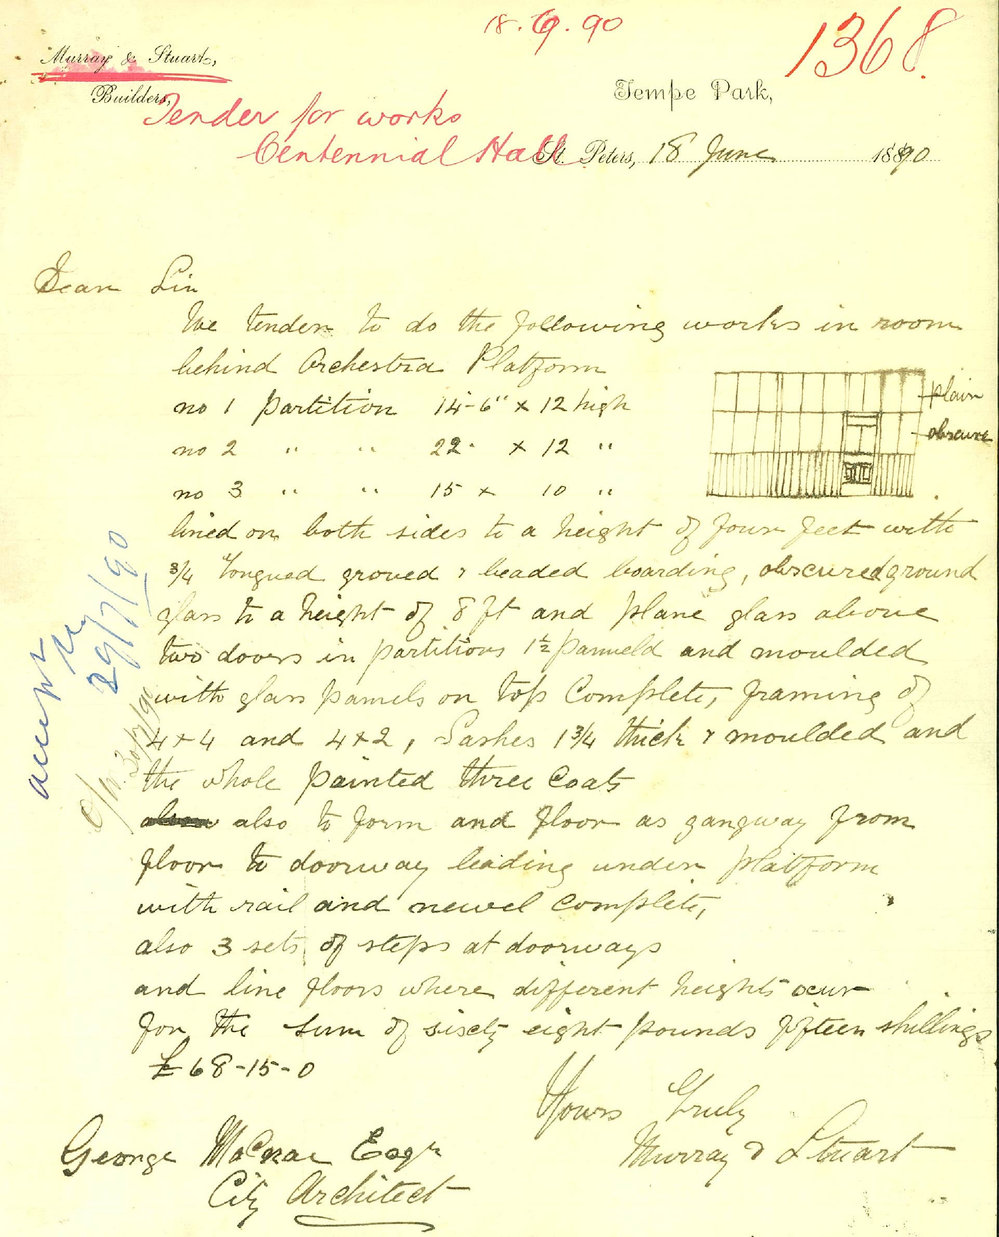 18.6.90
1368.
Murray & Stuart,
Builders,
Tempe Park,
Tender for works
Centennial Hall
St. Peters, 18 June 1890
Dear Sir
We tender to do the following works in room
behind Orchestra Platform
no 1 partition 14-6" x 12 high
no 2 " " 22 " x 12 "
no 3 " " 15 x 10 "
plain
obscure
lined on both sides to a height of four feet with
3/4 Tongued groved & beaded boarding, obscured ground
glass to a height of 8 ft and plane glass above
two doors in partitions 1½ panneld and moulded
with glass pannels on top complete, framing of
4x4 and 4x2, Sashes 1 3/4 thick & moulded and
the whole painted three coats
also to form and floor as gangway from
floor to doorway leading under platform
with rail and newel complete,
also 3 sets of steps at doorways
and line floors where different heights ocur
for the sum of sixty eight pounds fifteen shillings
£68-15-0
Yours Truly
Murray & Stuart
George McCrae Esqr
City Architect
accept
29/7/90
30/7/90